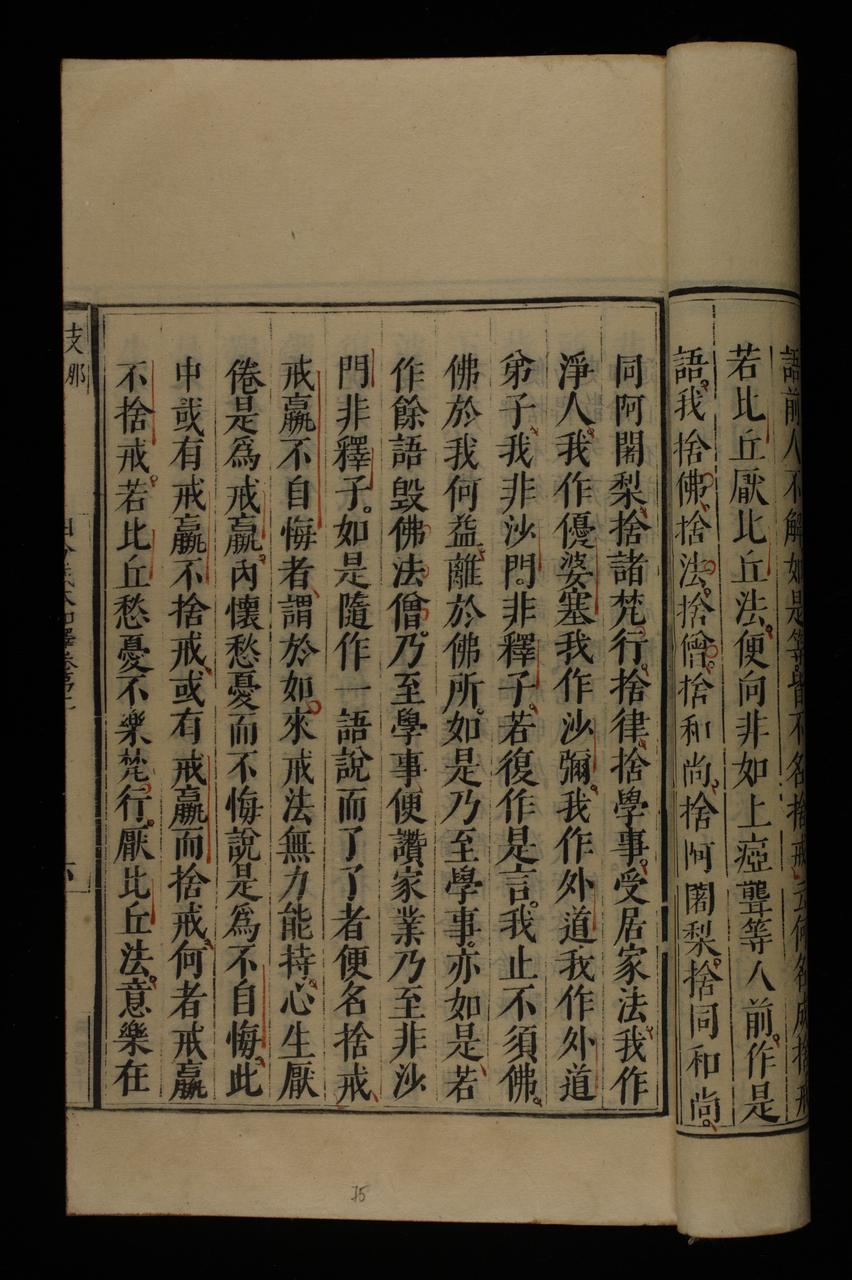 語前人不解如是等皆不名捨戒云何名成捨戒
若比丘厭比丘法。便向非如上瘂聾等人前。作是
語。我捨佛、捨法。捨僧。捨和尚、捨阿闍梨。捨同和尚。
同阿闍梨、捨諸梵行。捨律、捨學事。受居家法。我作
淨人。我作優婆塞。我作沙彌。我作外道。我作外道
弟子、我非沙門。非釋子。若復作是言。我止不須佛。
佛於我何益。離於佛所。如是乃至學事。亦如是。若
作餘語毀佛法僧。乃至學事便讚家業乃至非沙
門非釋子。如是隨作一語說而了了者便名捨戒、
戒羸不自悔者、謂於如來戒法無力能持。心生厭
倦是爲戒羸。內懷愁憂而不悔說是爲不自悔。此
中或有戒羸不捨戒、或有戒羸而捨戒、何者戒羸
不捨戒。若比丘愁憂不樂梵行。厭比丘法。意樂在
支那
六
75